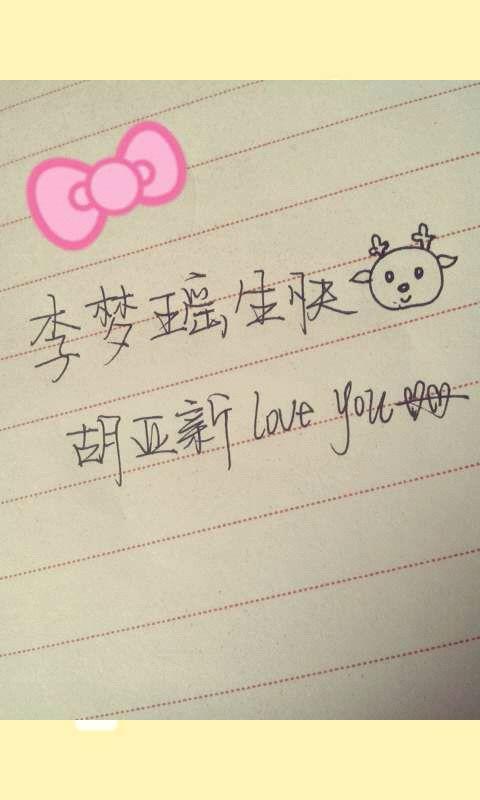 李梦瑶,生快
胡亚新 love you